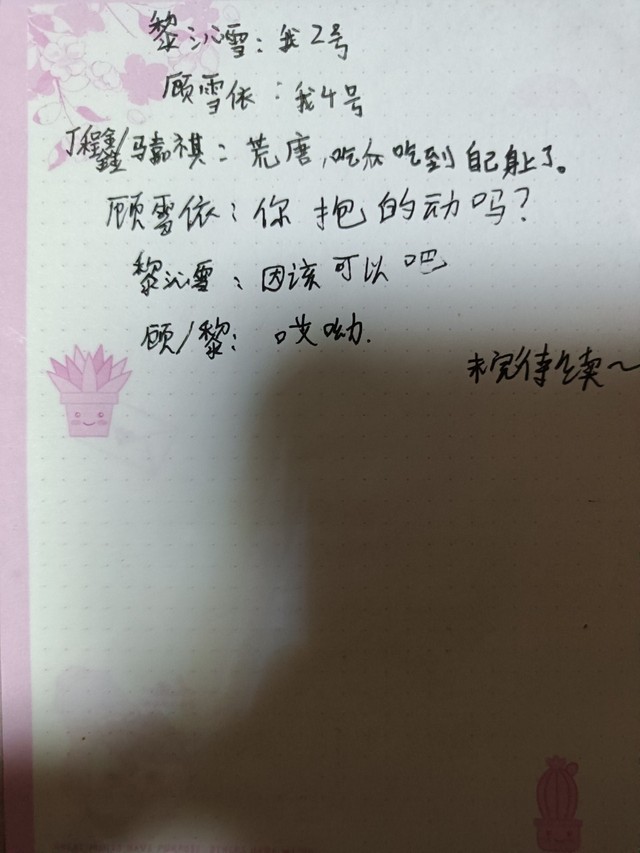 黎沁雪：我2号
顾雪依：我4号
丁程鑫/马嘉祺：荒唐，吃瓜吃到自己身上了。
顾雪依：你抱的动吗？
黎沁雪：因该可以吧
顾/黎：哎呦.
未完待续～